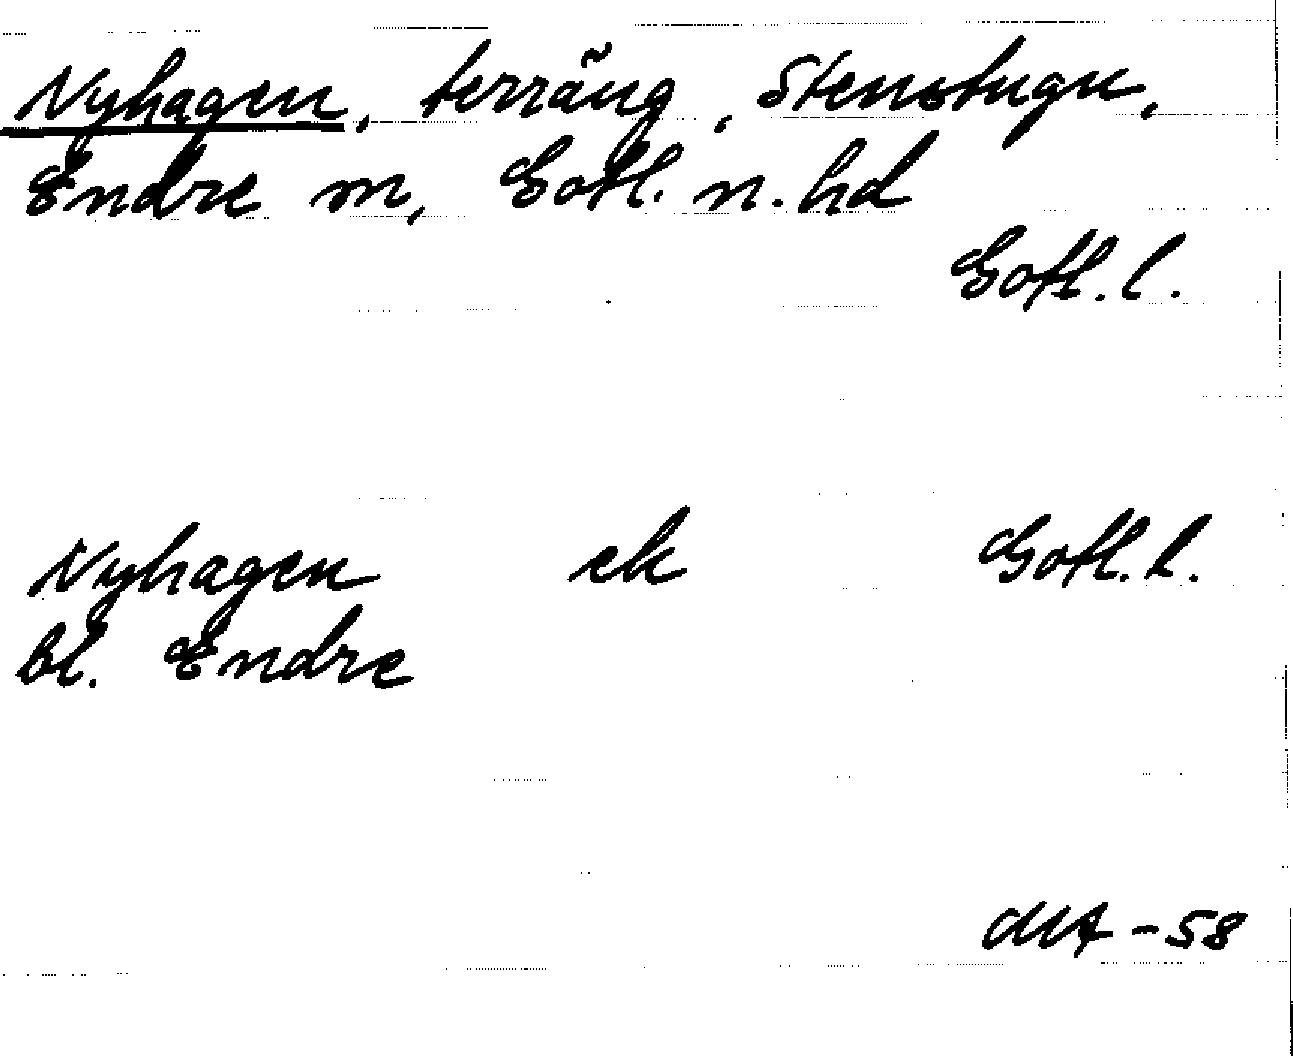 Nyhagen, terräng, Stenstugu,
Endre sn, Gotl. n. hd
Gotl. l.
Nyhagen ek Gotl. l.
bl. Endre
-58